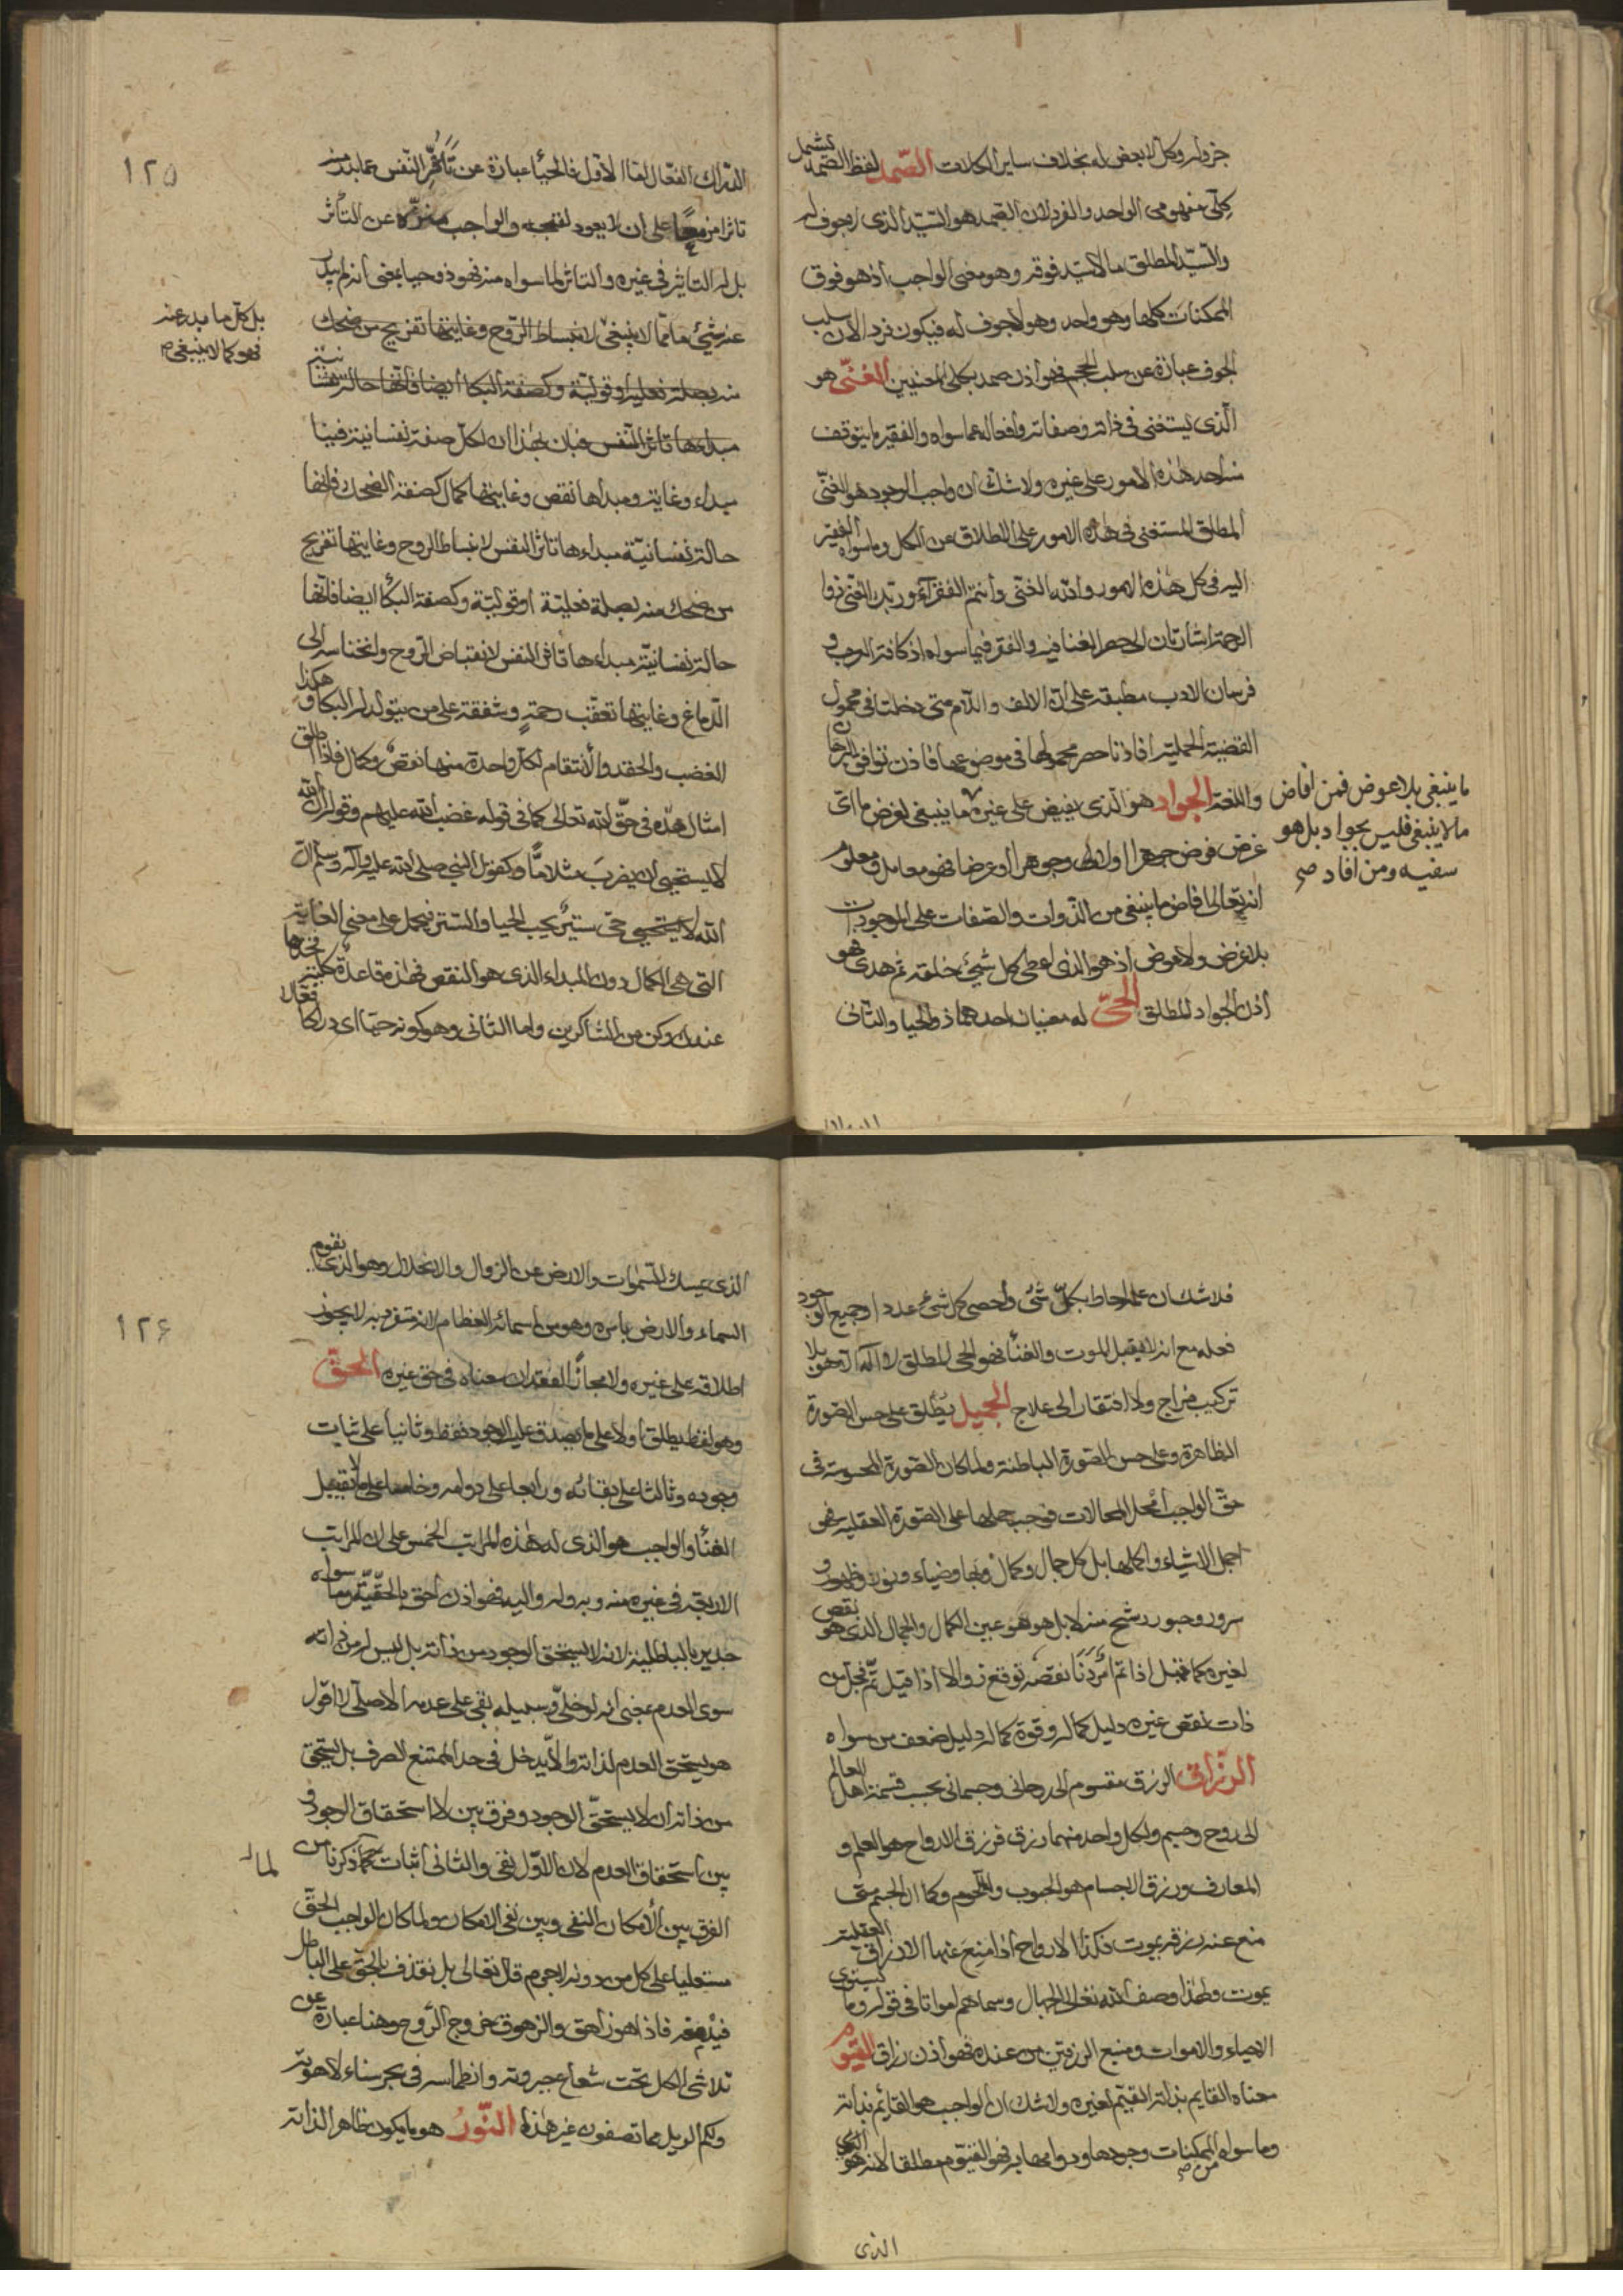 جزء له وكل لا بعض له بخلاف ساير الكلات الصّمد لفظ الصمد يشمل
كلى مفهومى الواحد والفرد لان الصمد هو السّيّد الذى لا جوف له
والسّيّد المطلق ما لا سيّد فوقه وهو معنى الواجب اذ هو فوق
الممكنات كلها وهو واحد وهو لا جوف له فيكون فردا لان سلب
الجوف عبارة عن سلب الحجم فهو اذن صمد بكلى المعنيين الغنىّ هو
الّذى يستغنى فى ذاته وصفاته وافعاله عما سواه والفقير ما يتوقف
شى احد هذه الامور على غيره ولا شك ان واجب الوجود هو الغنىّ
المطلق المستغنى فى هذه الامور على الاطلاق عن الكل وما سواه الفقير
اليه فى كل هذه الامور والله الغنى وانتم الفقراء وربّك الغنىّ ذوا
الرحمة اشارتان الى حصر الغنا فيه والفقر فيما سواه اذ كافة العرب و
فرسان الادب مطبقة على انّ الالف واللام متى دخلت فى محمول
القضيّة الحمليّة افادتا حصر محمولها فى موضوعها فاذن توافق البرهان
واللغة الجواد هو الّذى يفيض على غيره ما ينبغى لا لغرض ما اىّ
غرض فرض جوهرا او
انه تعالى افاض ما ينبغى من الذّوات والصّفات على الموجودات
بلا غرض ولا عوض اذ هو الذى اعطى كل شىء خلقه ثم هدى فهو
اذن الجواد المطلق الحىّ له معنيان احدهما ذو الحيا والثانى
ما ينبغى بلا عوض فمن افاض
ما لا ينبغى فليس بجواد بل هو
سفيه ومن افاد صح
١٢٥
الدّراك الفعّال اما الاول فالحيا عبارة عن تأثّر النّفس عما بدر منه
تاثرا مزعجا على ان لا يعود لفعله والواجب منزّه عن التأثر
بل له التاثير فى غيره والتاثر لما سواه منه فهو ذو حيا بمعنى انه لم يبدر
عنه شىء ما ممّا لا ينبغى لانبساط الرّوح وغايتها تفريج من ضحك
منه بصلة فعلية او قوليّة وكصفة البكا ايضا فانّها حالة نفسانية
مبداءها تاثر النفس فبان بهذا ان لكل صفة نفسانية فينا
مبداء وغاية ومبداها نقص وغايتها كمال كصفة الضحك فانها
حالة نفسانيّة مبداءها تاثر النفس لانبساط الروح وغايتها تفريج
من ضحك منه بصلة فعليّة او قوليّة وكصفة البكا ايضا فانّها
حالة نفسانيّة مبداءها تاثر النفس لانقباض الرّوح وانخناسه الى
الدّماغ وغايتها تعقّب رحمة وشفقة على من يتولد له البكا وهكذا
الغضب والحقد والانتقام لكل واحدة منها نقص وكمال فاذا اطلق
امثال هذه فى حقّ الله تعالى كما فى قوله غضب الله عليهم وقوله ان الله
لا يستحيى ان يضرب مثلا مّا وكقول النبى صلى الله عليه وآله وسلم انّ
الله حىّ ستير يحب الحيا والستر فيحمل على معنى الغاية
التى هى الكمال دون المبداء الذى هو النقص فهذه قاعدة كلية فخذها
عندك وكن من الشاكرين واما الثانى وهو كونه حيّا اى دراكا فعّالا
بل كل ما يبدر عنه
فهو كما لا ينبغى
فلا شك ان علمه احاط بكلّ شىء واحصى كل شىء عددا وجميع الوجود
فعله مع انه لا يقبل الموت والفناء فهو الحى المطلق لا اله الا هو بلا
تركيب مزاج ولا افتقار الى علاج الجميل يطلق على حسن الصّورة
الظاهرة وعلى حسن الصّورة الباطنة ولما كان الصّورة المحسوسة فى
حق الواجب امحل المحالات فوجب حملها على الصّورة العقلية فهو
اجمل الاشياء واكملها بل كل جمال وكمال وبها وضياء ونور وظهور و
سرور وحبور رشح منه لا بل هو هو عين الكمال والجمال الذى هو نقص
لغيره كما قيل اذا تمّ امر دنا نقصه توقع زوالا اذا قيل تمّ فجلّ من
ذات نقص غيره دليل كماله وقوة كماله دليل ضعف من سواه
الرزّاق الرزق مقسوم الى روحانى وجسمانى بحسب قسمة اهل العالم
الى روح وجسم ولكل واحد منهما رزق فرزق الارواح هو العلم و
المعارف ورزق الاجسام هو الحبوب واللّحوم وكما ان الجسم متى
منع عنه رزقه يموت فكذا الارواح اذا منع عنها الارزاق العقلية
يموت ولهذا وصف الله تعالى الجهال وسماهم امواتا فى قوله وما يستوى
الاحياء والاموات ومنبع الرزقين من عنده فهو اذن رزاق القيّوم
معناه القايم بذاته المقيّم لغيره ولا شك ان الواجب هو القائم بذاته
وما سواه من الممكنات وجودها ودوامها به فهو القيّوم مطلقا لانه هو
الذى
١٢٦
الذى يمسك السّموات والارض من الزوال والانحلال وهو الذى تقوم
السماء والارض بامره وهو من اسمائه العظام لانه متفرد به لا يجوز
اطلاقه على غيره ولا مجازا لفقدان معناه فى حق غيره الحقّ
وهو لفظ يطلق اولا على ما يصدق عليه الوجود فقط وثانيا على ثبات
وجوده وثالثا على بقائه ورابعا على دوامه وخامسا على ما لا يقبل
الفناء والواجب هو الذى له هذه المراتب الخمس على ان المراتب
الاربعة فى غيره منه وبه وله واليه فهو اذن احق بالحقّيّة وما سواه
جدير بالباطلية لانه لا يستحق الوجود من ذاته بل ليس له من ذاته
سوى العدم بمعنى انه لو خلّى وسبيله بقى على عدمه الاصلى لا اقول
هو يستحق العدم لذاته والا يدخل فى حد الممتنع الصرف بل يستحق
من ذاته ان لا يستحقّ الوجود وفرق بين لا استحقاق الوجود و
بين استحقاق العدم لان الاوّل نفى والثانى اثبات كما ذكرنا من
الفرق بين الامكان النفى وبين نفى الامكان ولما كان الواجب الحقّ
مستعليا على كل من دونه لا جرم قال تعالى بل نقذف بالحق على الباطل
فيدمغه فاذا هو زاهق والزهوق خروج الرّوح وهنا عبارة عن
تلاشى الكل تحت شعاع جبروته وانطماسه فى بحر سناء لاهوته
ولكم الويل مما تصفون غير هذا النّور هو ما يكون ظاهرا لذاته